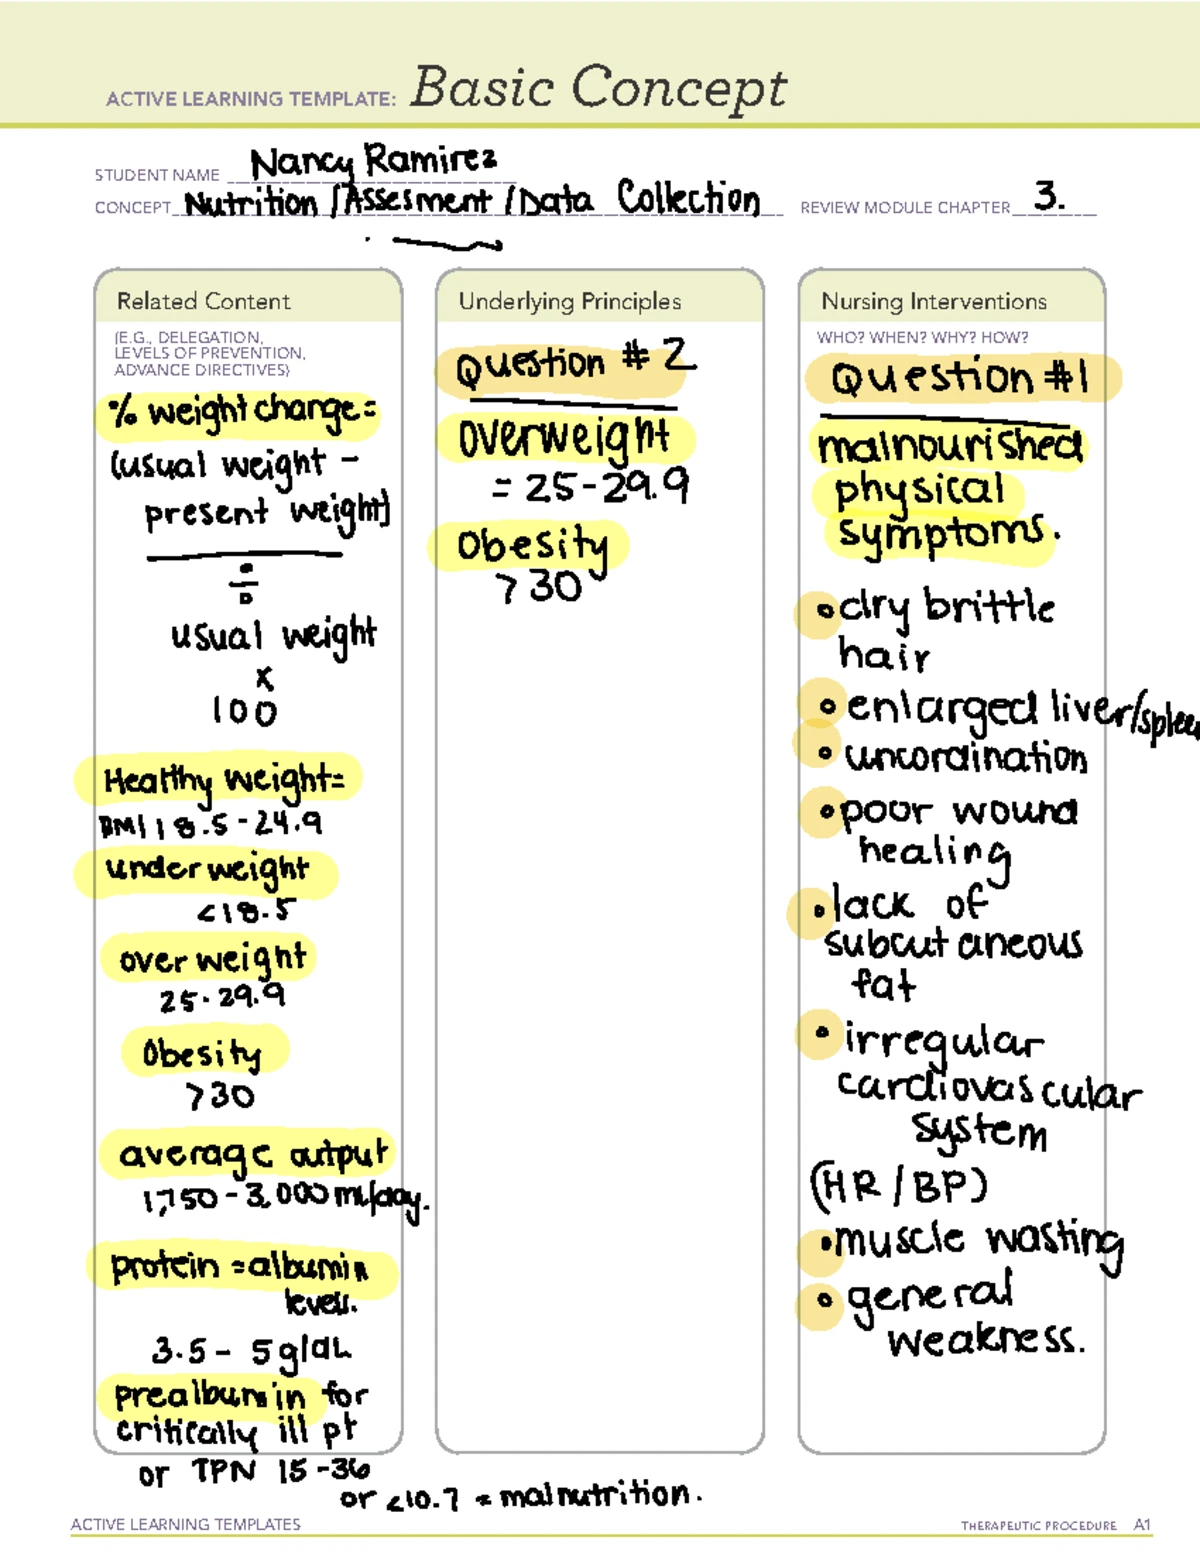 ACTIVE LEARNING TEMPLATE: Basic Concept
STUDENT NAME Nancy Ramirez
CONCEPT Nutrition /Assesment /Data Collection REVIEW MODULE CHAPTER 3.
Related Content
(E.G., DELEGATION,
LEVELS OF PREVENTION,
ADVANCE DIRECTIVES)
% weight change=
(usual weight -
present weight)
÷
usual weight
x
100
Healthy weight=
BMI 18.5-24.9
underweight
<18.5
over weight
25-29.9
Obesity
>30
average output
1,750-3,000 mL/day.
protein =albumin
levels.
3.5- 5g/dL
prealbumin for
critically ill pt
or TPN 15-36
or <10.7 = malnutrition.
Underlying Principles
Question #2
overweight
= 25-29.9
Obesity
>30
Nursing Interventions
WHO? WHEN? WHY? HOW?
Question #1
malnourished
physical
symptoms.
•dry brittle
hair
•enlarged liver/spleen
•uncordination
•poor wound
healing
•lack of
subcutaneous
fat
•irregular
cardiovascular
system
(HR/BP)
•muscle wasting
•general
weakness.
ACTIVE LEARNING TEMPLATES THERAPEUTIC PROCEDURE A1